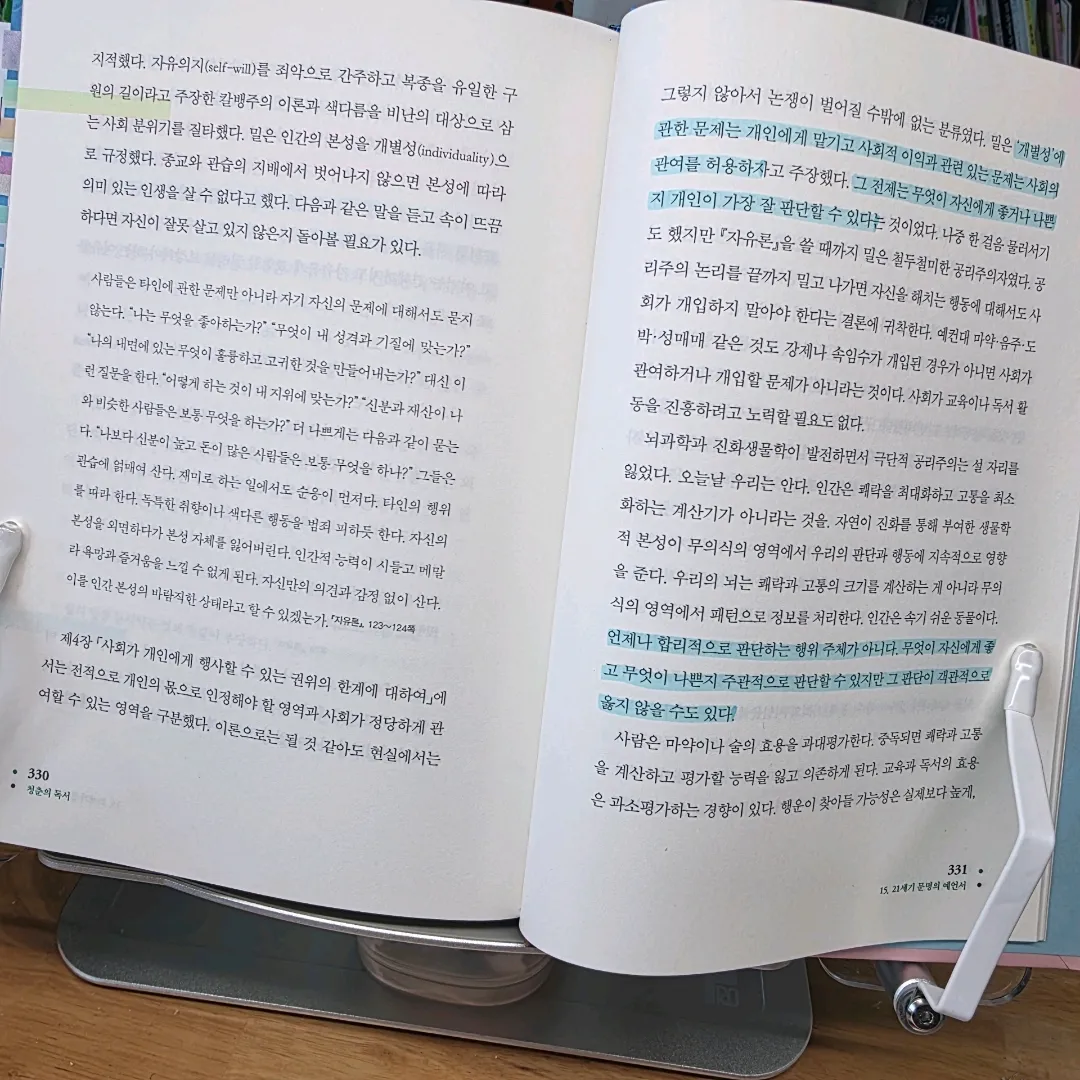 지적했다. 자유의지(self-will)를 죄악으로 간주하고 복종을 유일한 구
원의 길이라고 주장한 칼뱅주의 이론과 색다름을 비난의 대상으로 삼
는 사회 분위기를 질타했다. 밀은 인간의 본성을 개별성(individuality)으
로 규정했다. 종교와 관습의 지배에서 벗어나지 않으면 본성에 따라
의미 있는 인생을 살 수 없다고 했다. 다음과 같은 말을 듣고 속이 뜨끔
하다면 자신이 잘못 살고 있지 않은지 돌아볼 필요가 있다.
사람들은 타인에 관한 문제만 아니라 자기 자신의 문제에 대해서도 묻지
않는다. “나는 무엇을 좋아하는가?” “무엇이 내 성격과 기질에 맞는가?”
“나의 내면에 있는 무엇이 훌륭하고 고귀한 것을 만들어내는가?” 대신 이
런 질문을 한다. “어떻게 하는 것이 내 지위에 맞는가?” “신분과 재산이 나
와 비슷한 사람들은 보통 무엇을 하는가?” 더 나쁘게는 다음과 같이 묻는
다. “나보다 신분이 높고 돈이 많은 사람들은 보통 무엇을 하나?” 그들은
관습에 얽매여 산다. 재미로 하는 일에서도 순응이 먼저다. 타인의 행위
를 따라 한다. 독특한 취향이나 색다른 행동을 범죄 피하듯 한다. 자신의
본성을 외면하다가 본성 자체를 잃어버린다. 인간적 능력이 시들고 메말
라 욕망과 즐거움을 느낄 수 없게 된다. 자신만의 의견과 감정 없이 산다.
이를 인간 본성의 바람직한 상태라고 할 수 있겠는가. 『자유론』, 123~124쪽
제4장 「사회가 개인에게 행사할 수 있는 권위의 한계에 대하여」에
서는 전적으로 개인의 몫으로 인정해야 할 영역과 사회가 정당하게 관
여할 수 있는 영역을 구분했다. 이론으로는 될 것 같아도 현실에서는
330
청춘의 독서
그렇지 않아서 논쟁이 벌어질 수밖에 없는 분류였다. 밀은 '개별성'에
관한 문제는 개인에게 맡기고 사회적 이익과 관련 있는 문제는 사회의
관여를 허용하자고 주장했다. 그 전제는 무엇이 자신에게 좋거나 나쁜
지 개인이 가장 잘 판단할 수 있다는 것이었다. 나중 한 걸음 물러서기
도 했지만 『자유론』을 쓸 때까지 밀은 철두철미한 공리주의자였다. 공
리주의 논리를 끝까지 밀고 나가면 자신을 해치는 행동에 대해서도 사
회가 개입하지 말아야 한다는 결론에 귀착한다. 예컨대 마약·음주·도
박·성매매 같은 것도 강제나 속임수가 개입된 경우가 아니면 사회가
관여하거나 개입할 문제가 아니라는 것이다. 사회가 교육이나 독서 활
동을 진흥하려고 노력할 필요도 없다.
뇌과학과 진화생물학이 발전하면서 극단적 공리주의는 설 자리를
잃었다. 오늘날 우리는 안다. 인간은 쾌락을 최대화하고 고통을 최소
화하는 계산기가 아니라는 것을. 자연이 진화를 통해 부여한 생물학
적 본성이 무의식의 영역에서 우리의 판단과 행동에 지속적으로 영향
을 준다. 우리의 뇌는 쾌락과 고통의 크기를 계산하는 게 아니라 무의
식의 영역에서 패턴으로 정보를 처리한다. 인간은 속기 쉬운 동물이다.
언제나 합리적으로 판단하는 행위 주체가 아니다. 무엇이 자신에게 좋
고 무엇이 나쁜지 주관적으로 판단할 수 있지만 그 판단이 객관적으로
옳지 않을 수도 있다.
사람은 마약이나 술의 효용을 과대평가한다. 중독되면 쾌락과 고통
을 계산하고 평가할 능력을 잃고 의존하게 된다. 교육과 독서의 효용
은 과소평가하는 경향이 있다. 행운이 찾아들 가능성은 실제보다 높게,
331
15. 21세기 문명의 예언서